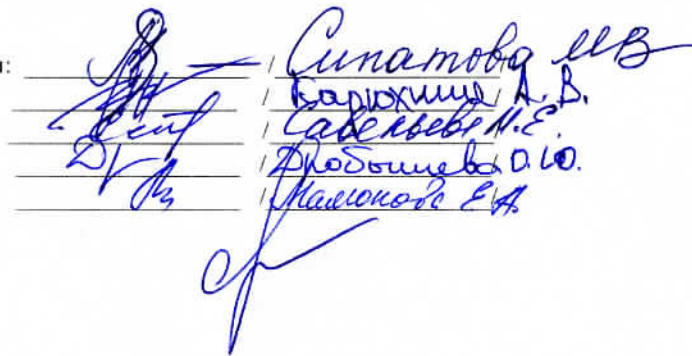 : / Сипатова МВ
/ Барюхина А. В.
/ Савельева Н.Е.
/ Дробышева О.Ю.
/ Мамонова Е.А.